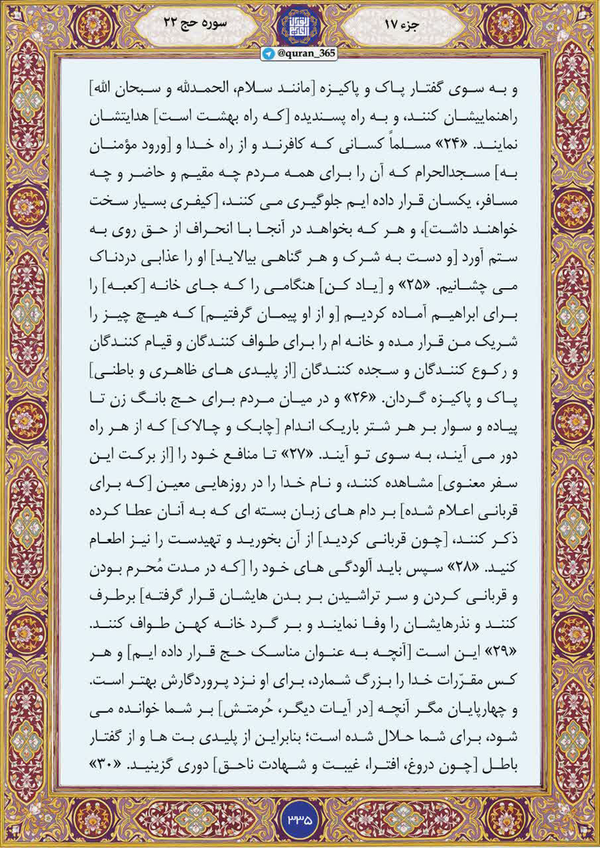 جزء ۱۷
سوره حج ۲۲
@quran_365
و به سوی گفتار پاک و پاکیزه [مانند سلام، الحمدلله و سبحان الله]
راهنماییشان کنند، و به راه پسندیده [که راه بهشت است] هدایتشان
نمایند. «۲۴» مسلماً کسانی که کافرند و از راه خدا و [ورود مؤمنان
به] مسجدالحرام که آن را برای همه مردم چه مقیم و حاضر و چه
مسافر، یکسان قرار داده ایم جلوگیری می کنند، [کیفری بسیار سخت
خواهند داشت]، و هر که بخواهد در آنجا با انحراف از حق روی به
ستم آورد [و دست به شرک و هر گناهی بیالاید] او را عذابی دردناک
می چشانیم. «۲۵» و [یاد کن] هنگامی را که جای خانه [کعبه] را
برای ابراهیم آماده کردیم [و از او پیمان گرفتیم] که هیچ چیز را
شریک من قرار مده و خانه ام را برای طواف کنندگان و قیام کنندگان
و رکوع کنندگان و سجده کنندگان [از پلیدی های ظاهری و باطنی]
پاک و پاکیزه گردان. «۲۶» و در میان مردم برای حج بانگ زن تا
پیاده و سوار بر هر شتر باریک اندام [چابک و چالاک] که از هر راه
دور می آیند، به سوی تو آیند. «۲۷» تا منافع خود را [از برکت این
سفر معنوی] مشاهده کنند، و نام خدا را در روزهایی معین [که برای
قربانی اعلام شده] بر دام های زبان بسته ای که به آنان عطا کرده
ذکر کنند، [چون قربانی کردید] از آن بخورید و تهیدست را نیز اطعام
کنید. «۲۸» سپس باید آلودگی های خود را [که در مدت مُحرم بودن
و قربانی کردن و سر تراشیدن بر بدن هایشان قرار گرفته] برطرف
کنند و نذرهایشان را وفا نمایند و بر گرد خانه کهن طواف کنند.
«۲۹» این است [آنچه به عنوان مناسک حج قرار داده ایم] و هر
کس مقرّرات خدا را بزرگ شمارد، برای او نزد پروردگارش بهتر است.
و چهارپایان مگر آنچه [در آیات دیگر، حُرمتش] بر شما خوانده می
شود، برای شما حلال شده است؛ بنابراین از پلیدی بت ها و از گفتار
باطل [چون دروغ، افترا، غیبت و شهادت ناحق] دوری گزینید. «۳۰»
۳۳۵